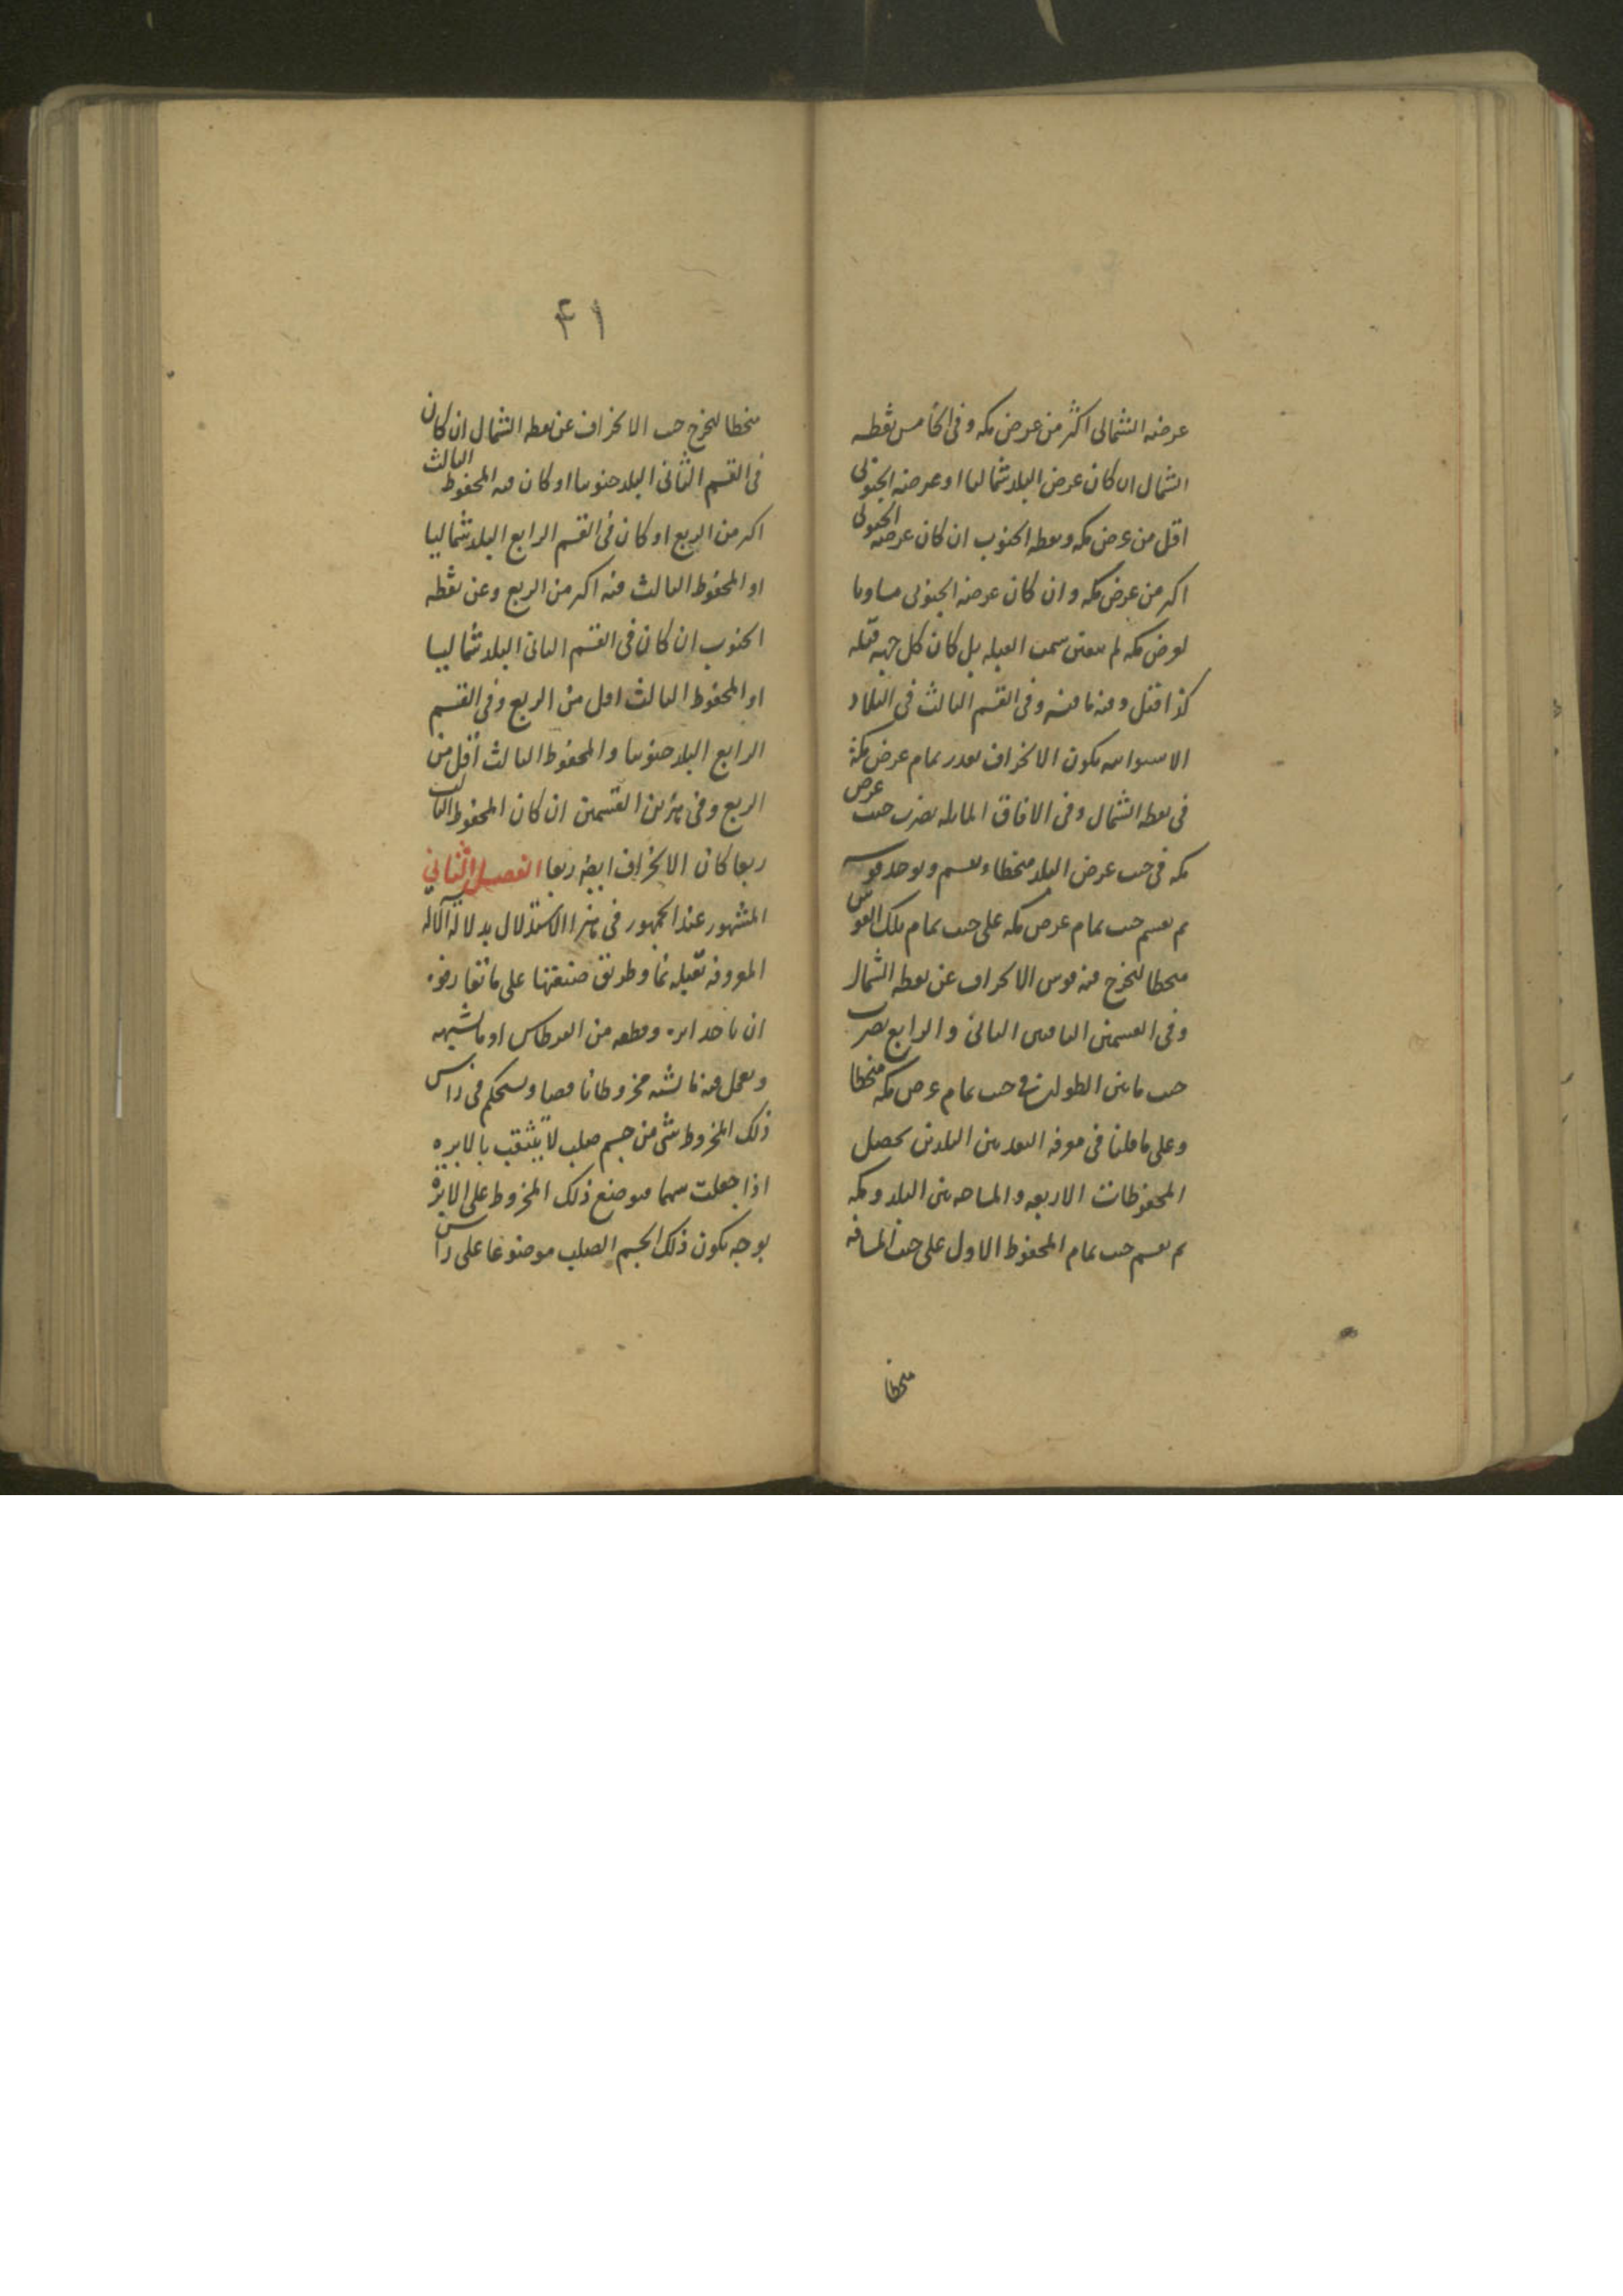 عرضه الشمالى اكثر من عرض مكه وفى الخامس نقطه
الشمال ان كان عرض البلد شماليا او عرضه الجنوبى
اقل من عرض مكه ونقطه الجنوب ان كان عرضه الجنوبى
اكبر من عرض مكه وان كان عرضه الجنوبى مساويا
لعرض مكه لم يتعين سمت القبله بل كان كل جهه قبله
كذا قيل وفيه ما فيه وفى القسم الثالث فى البلاد
الاستوائيه يكون الانحراف بقدر تمام عرض مكة
فى نقطه الشمال وفى الافاق المايله يضرب جيب عرض
مكه فى جيب عرض البلد منحطا ويقسم ويوخذ قوسه
ثم يقسم جيب تمام عرض مكه على جيب تمام تلك القوس
منحطا ليخرج منه قوس الانحراف عن نقطه الشمال
وفى القسمين الباقيين الثانى والرابع يضرب
جيب ما بين الطولين فى جيب تمام عرض مكه منحطا
وعلى ما قلنا فى معرفه البعد بين البلدين يحصل
المحفوظات الاربعه والمساحه بين البلد ومكه
ثم يقسم جيب تمام المحفوظ الاول على جيب المسافه
منحطا
۴۱
منحطا ليخرج جيب الانحراف عن نقطه الشمال ان كان
فى القسم الثانى البلد جنوبيا او كان فيه المحفوظ الثالث
اكبر من الربع او كان فى القسم الرابع البلد شماليا
او المحفوظ الثالث فيه اكبر من الربع وعن نقطه
الجنوب ان كان فى القسم الثانى البلد شماليا
او المحفوظ الثالث اقل من الربع وفى القسم
الرابع البلد جنوبيا والمحفوظ الثالث اقل من
الربع وفى هذين القسمين ان كان المحفوظ الثالث
ربعا كان الانحراف ايضا ربعا الفصل الثانى
المشهور عند الجمهور فى هذا الاستدلال بدلالة الآله
المعروفه بقبله نما وطريق صنعتها على ما تعارفوه
ان ياخذ ابره وقطعه من القرطاس او ما شبهه
ويعمل منه ما يشبه مخروطا ناقصا ويستحكم فى راس
ذلك المخروط شى من جسم صلب لا يثقب بالابره
اذا جعلت سهما فيوضع ذلك المخروط على الابرة
بوجه يكون ذلك الجسم الصلب موضوعا على راس